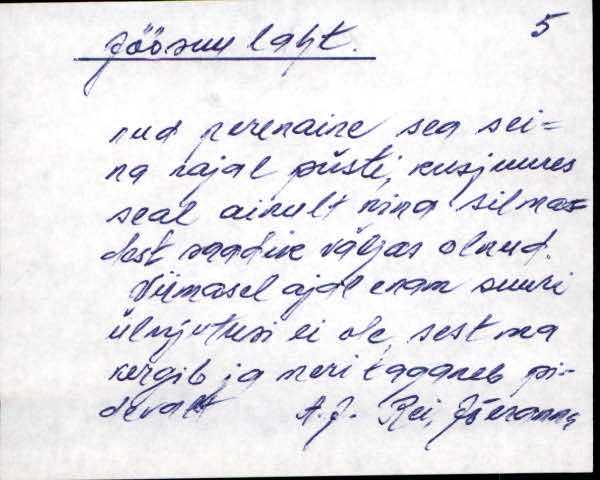 Jõõsuu laht.
5
nud perenaine sea sei=
na najal püsti, kusjuures
seal ainult nina silma=
dest saadik väljas olnud.
Viimasel ajal enam suuri
ülujutusi ei ole, sest maa
kergib ja meri taganeb pi-
devalt A.J. Rei, Jõeranna